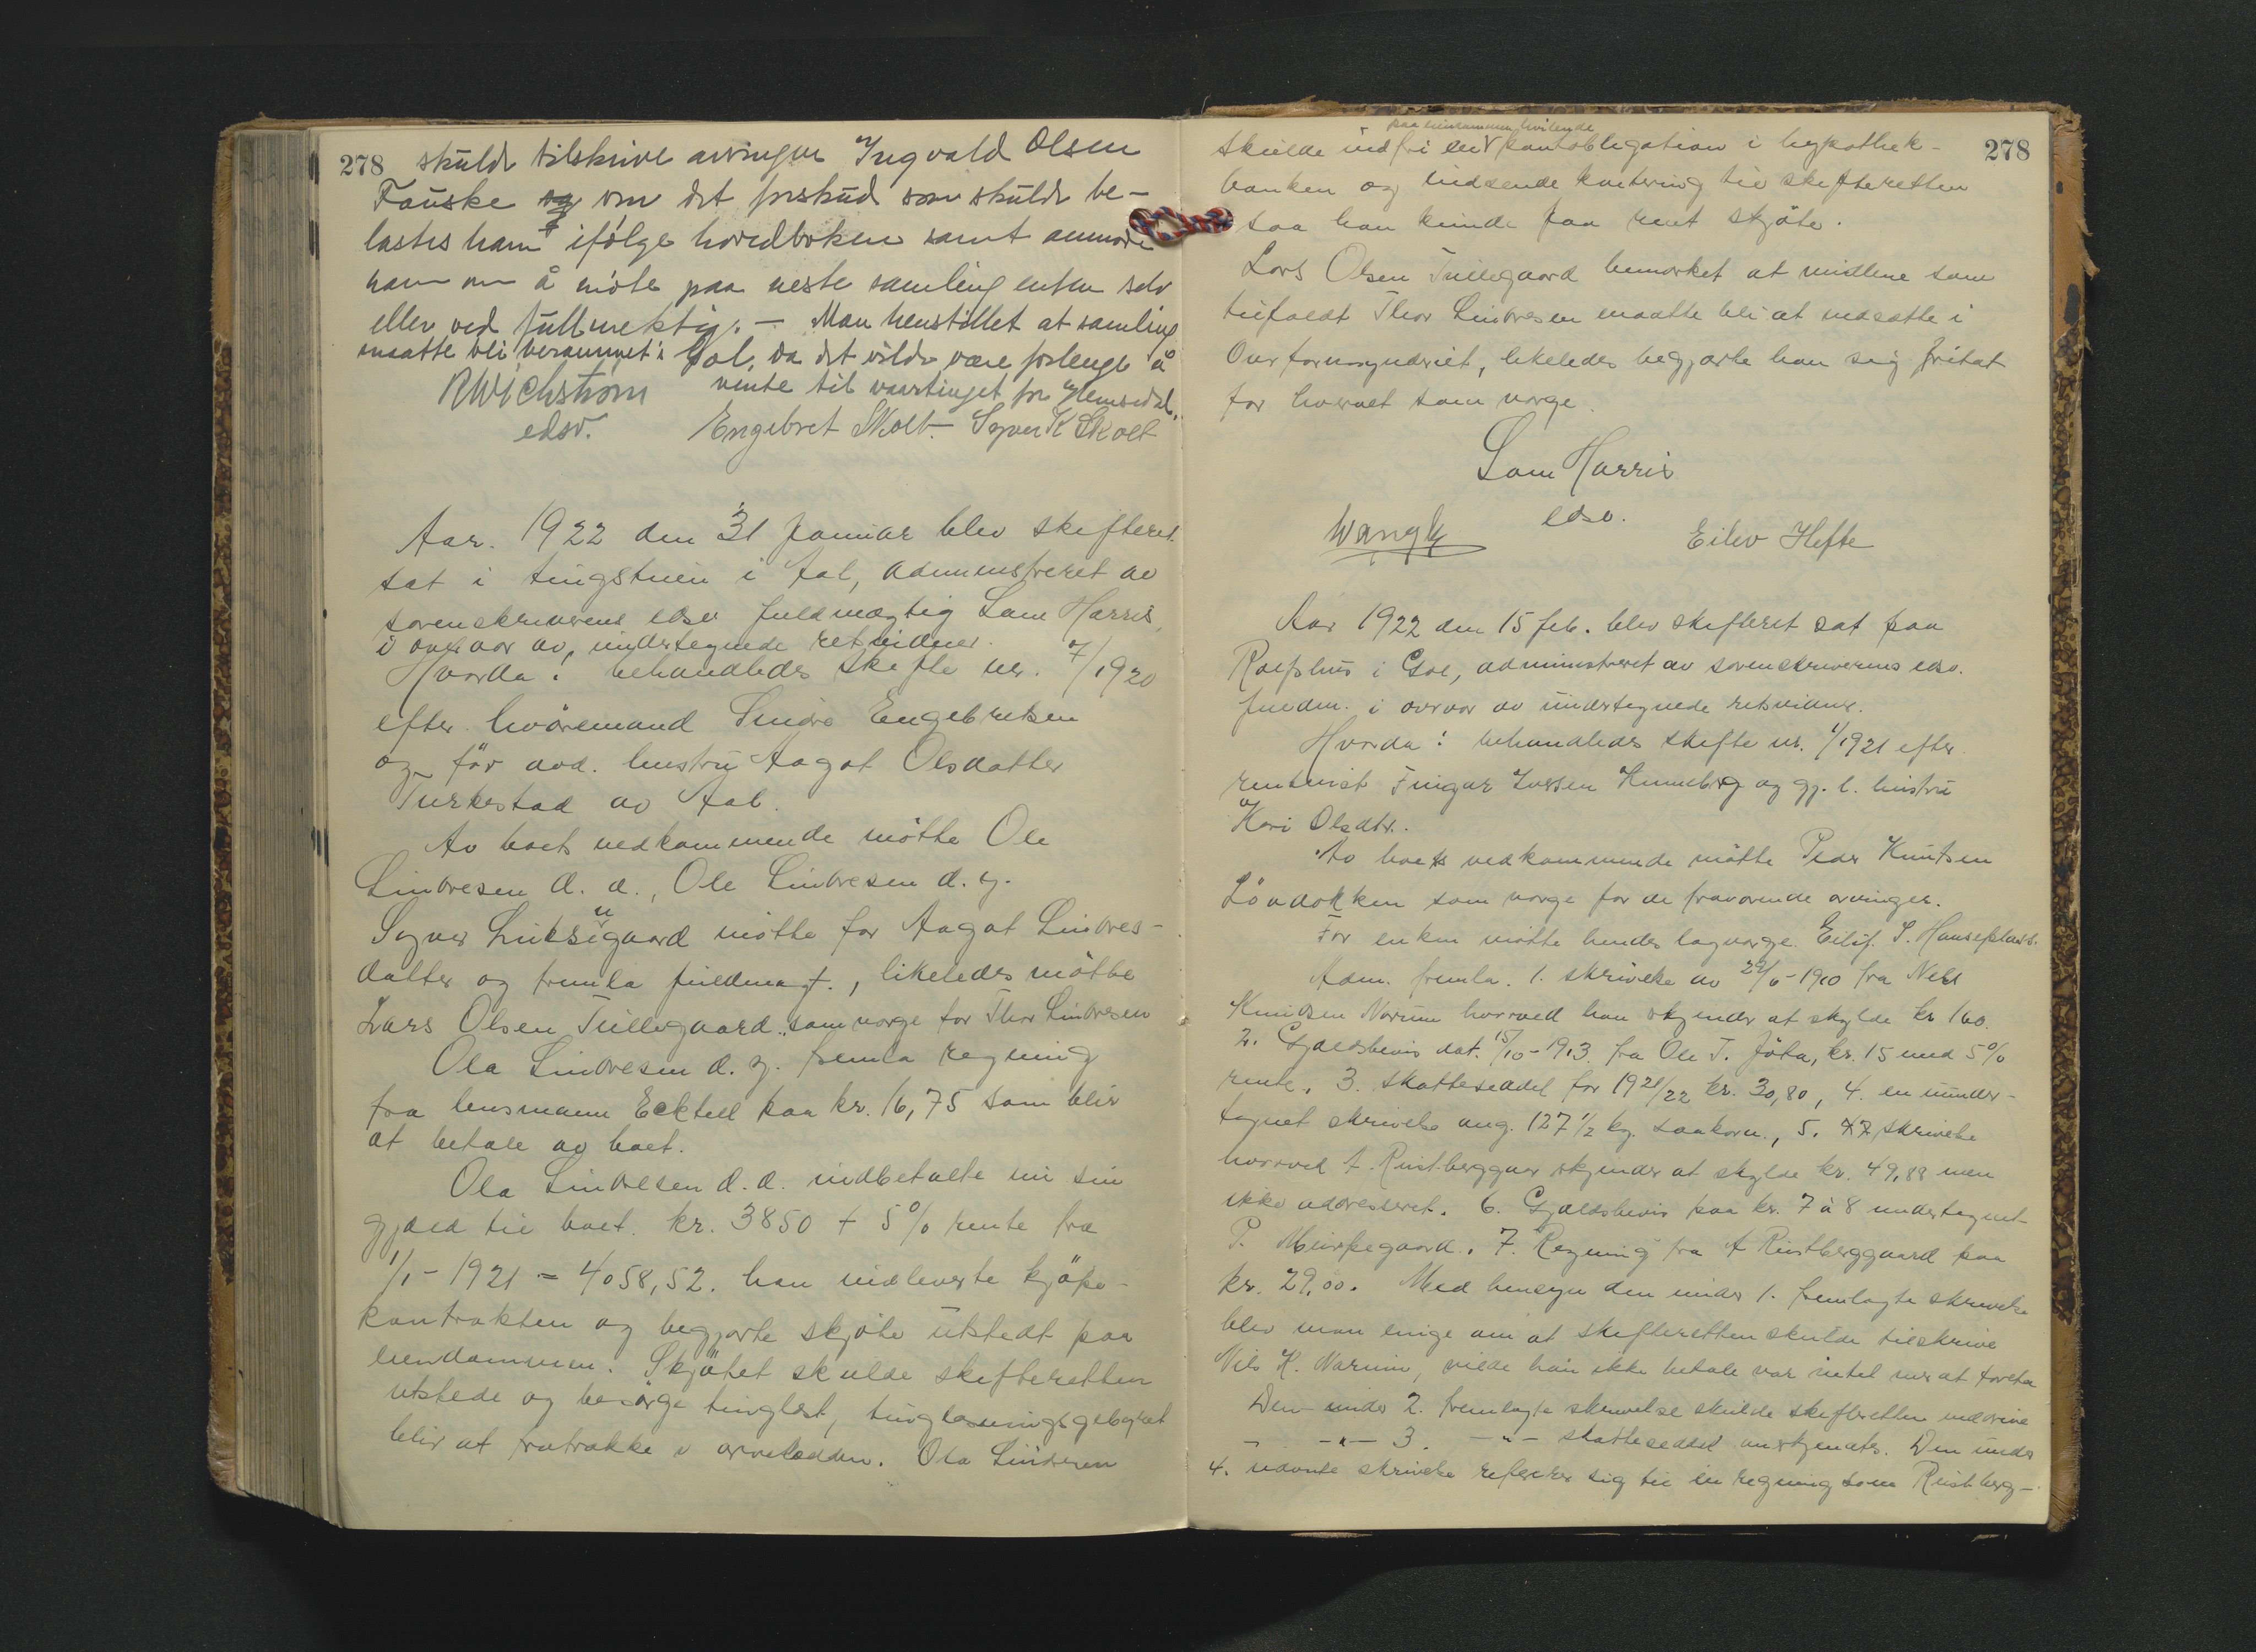 278 skulde tilskrive arvingen Ingvald Olsen
Fauske om det forskud som skulde be-
lastes ham ifølge hovedboken samt anmode
ham om å møte paa neste samling enten selv
eller ved fullmektig. — Man henstillet at samling
maatte bli berammet i Gol, da det vilde være forlenge å
vente til vaartinget for Hemsedal.
RWichstrøm
edsv. Engebret Skolt. Syver K Skolt
Aar. 1922 den 31 januar blev skifteret
sat i tingstuen i Aal, administreret av
sorenskriverens edsv fuldmægtig Sam Harris,
i overvær av undertegnede retsvidner.
Hvorda: behandledes skifte nr. 7/1920
efter. kvåremand Sindre Engebretsen
og før avd. hustru Aagot Olsdatter
Turkestad av Aal.
Av boets vedkommende møtte Ole
Sindresen d. æ., Ole Sindresen d. y.
Syver gaard møtte for Aagot Sindres-
datter og fremla fuldmagt., likeledes møtte
Lars Olsen Tullegaard som verge for Thor Sindresen
Ola Sindresen d. y. fremla regning
fra lensmann Ecktell paa kr. 16,75 som blir
at betale av boet.
Ola Sindresen d. æ. indbetalte nu sin
gjæld til boet. kr. 3850 + 5% rente fra
1/1 - 1921 = 4058,52. han indleverte kjøpe-
kontrakten og begjærte skjøte utstedt paa
eiendommen. Skjøtet skulde skifteretten
utstede og besørge tinglæst, tinglæsningsgebyret
blir at fratrække i arvelodden. Ola Sindresen
278
paa eiendommen hvilende
skulde indfri en pantobligation i hypothek-
banken og indsende kvitering til skifteretten
saa han kunde faa rent skjøte.
Lars Olsen Tullegaard bemerket at midlene som
tilfaldt Thor Sindresen maatte bli at indsætte i
Overformynderiet, likeledes begjærte han sig fritat
for hvervet som verge.
Sam Harris
edsv.
Eiliv Hefte
Aar 1922 den 15 feb. blev skifteret sat paa
Rolfshus i Gol, administreret av sorenskriverens edsv.
fuldm. i overvær av undertegnede retsvidner.
Hvorda: behandledes skifte nr. 1/1921 efter
rentenist Fingar Iversen Kinneberg og gj. l. hustru
Kari Olsdtr.
Av boets vedkommende møtte Peder Knutsen
Løvdokken som verge for de fraværende arvinger.
For enken møtte hendes lagverge. Eilif. S. Hanseplass.
Adm. fremla. 1. skrivelse av 22/6-1910 fra Nels
Knudsen Narum hvorved han skjender at skylde kr 160.
2. Gjældsbevis dat. 15/10-1913 fra Ole T. Jøta, kr. 15 med 5%
rente. 3. skatteseddel for 1921/22 kr. 30,80, 4. en uunder-
tegnet skrivelse ang. 127 1/2 kg. saakorn., 5. skrivelse
hvorved A. Rustberggaar skjender at skylde kr. 49,88 men
ikke adresseret. 6. Gjældsbevis paa kr. 7 à 8 undertegnet
P. gaard. 7. Regning fra A Rustberggaard paa
kr. 29,00. Med hensyn den under 1. fremlagte skrivelse
blev man enige om at skifteretten skulde tilskrive
Nils K. Narum, vilde han ikke betale var intet mer at foreta
Den under 2. fremlagte skrivelse skulde skifteretten inddrive
— -"- 3. -"- skatteseddel anerkjendtes. Den under
4. nævnte skrivelse referer sig til en regning som Rustberg-